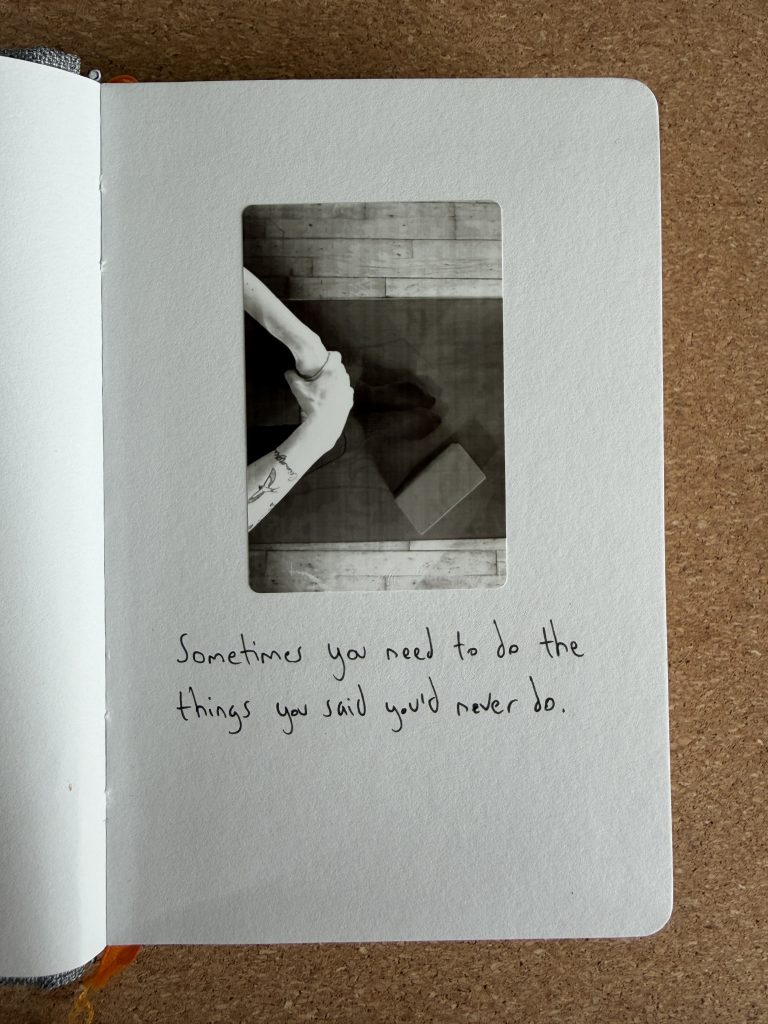 Sometimes you need to do the
things you said you'd never do.